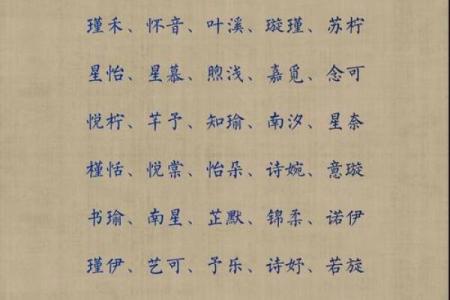 瑾禾、怀音、叶溪、璇瑾、苏柠
星怡、星慕、煦浅、嘉觅、念可
悦柠、芊予、知瑜、南汐、星奈
槿恬、悦棠、怡朵、诗婉、意璇
书瑜、南星、芷默、锦柔、诺伊
瑾伊、艺可、予乐、诗妤、若旋